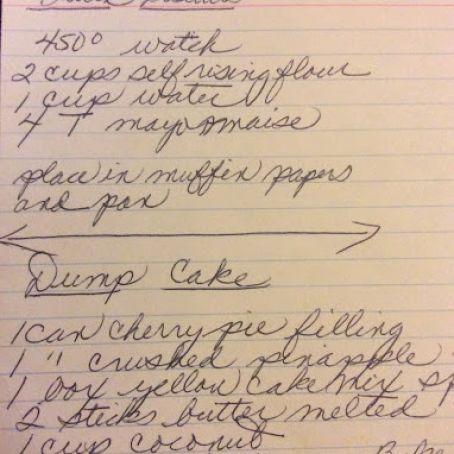 450° watch
2 cups self rising flour
1 cup water
4 T mayonnaise
place in muffin papers
and pan
Dump Cake
1 can cherry pie filling
1 " crushed pinapple
1 box yellow cake mix sp
2 sticks butter melted
1 cup coconut